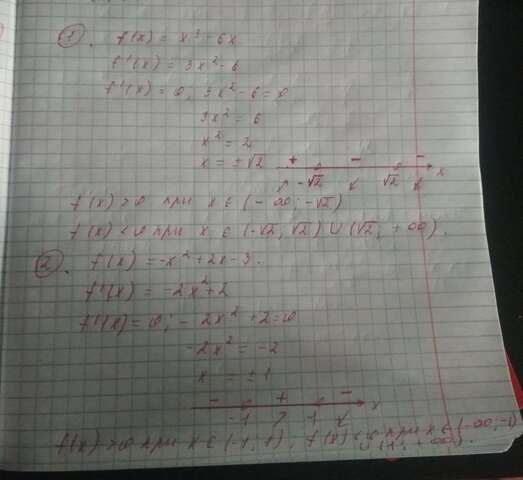 1. f(x) = x³ - 6x
f'(x) = 3x² - 6
f'(x) = 0, 3x² - 6 = 0
3x² = 6
x² = 2
x = ±√2
+ - -
-√2 √2 x
f(x) > 0 при x ∈ (-∞; -√2)
f(x) < 0 при x ∈ (-√2, √2) ∪ (√2; +∞).
2. f(x) = -x² + 2x - 3.
f'(x) = -2x² + 2
f'(x) = 0; -2x² + 2 = 0
-2x² = -2
x = ±1
- + -
-1 1 x
f(x) > 0 при x ∈ (-1, 1); f(x) < 0 при x ∈ (-∞; -1)
∪ (1; +∞).